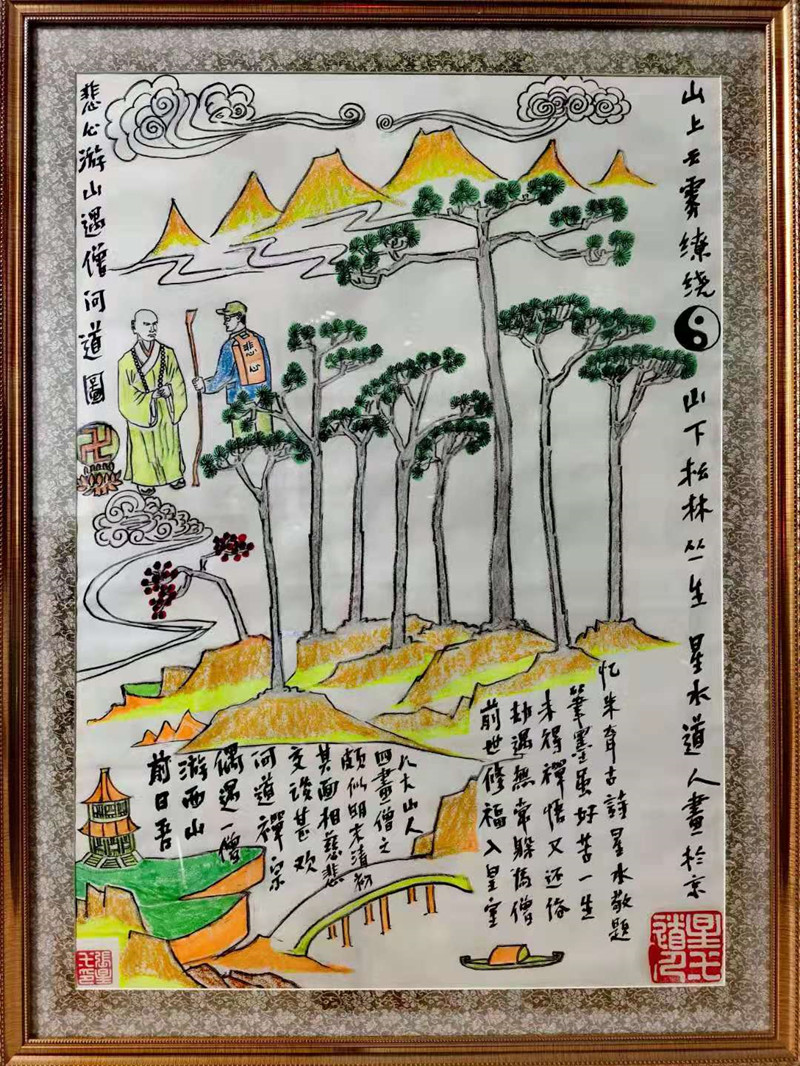 悲心游山遇僧问道圖
山上云雾缭绕山下松林丛生 星水道人畫於京
悲心
前日吾
游西山
偶遇一僧
问道禪宗
交谈甚欢
其面相慈悲
颇似明末清初
四畫僧之
八大山人
前世修福入皇室
劫遇無常躲為僧
未得禪悟又还俗
筆墨虽好苦一生
忆朱耷古詩星水敬題
星水道人